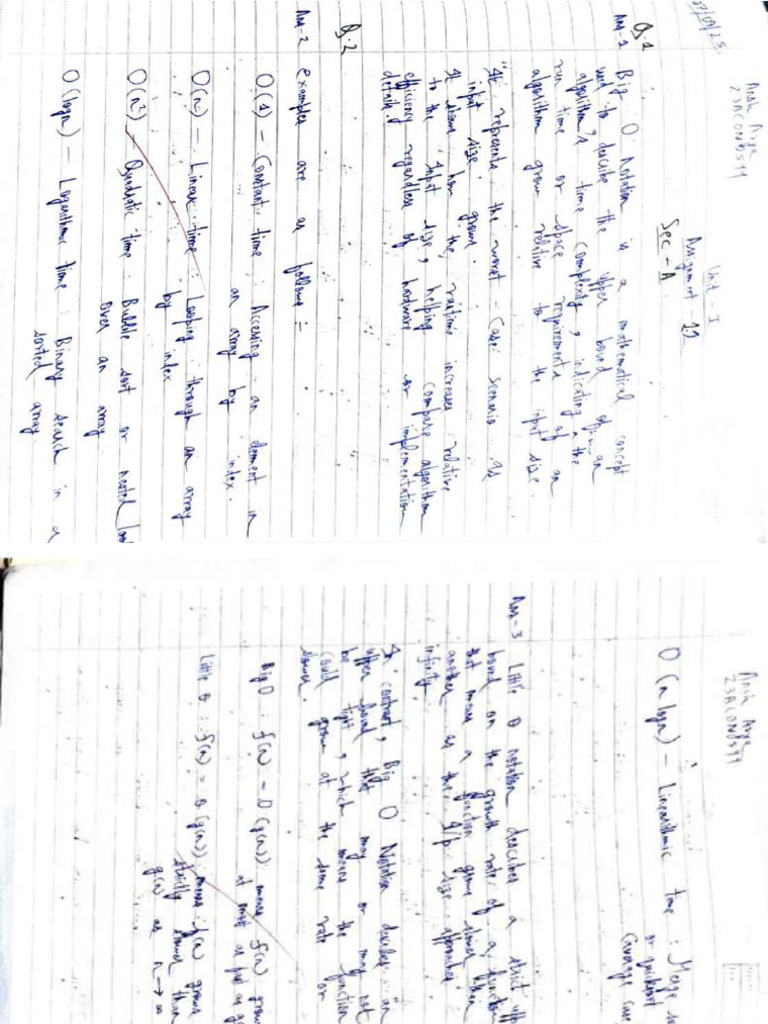 07/09/25
Ansh Arya
23BCON0599
Unit - I
Assignment - 12
Sec - A
Q.1
Ans-1 Big O Notation is a mathematical concept
used to describe the upper bound of an
algorithm's time complexity, indicating the
run time or space requirements of an
algorithm grow relative to the input size.
It represents the worst - Case scenario as
input size grows.
It shows how the runtime increases relative
to the input size, helping compare algorithm
efficiency regardless of hardware or implementation
details.
Q.2
Ans-2 examples are as follows :-
O(1) - Constant time : Accessing an element in
an array by index.
O(n) - Linear time : Looping through an array
by index
O(n²) - Quadratic time : Bubble sort or nested loo
over an array
O(log n) - Logarithmic time : Binary search in a
sorted array
Ansh Arya
23BCON0599
O(n log n) - Linearithmic time : Merge so
or quicksort
(average cas
Ans-3 Little o notation describes a strict upp
bound on the growth rate of a function
that means a function grows slower than
another as the I/p size approaches
infinity.
In contrast, Big O Notation describes an
upper bound that may or may not
be tight, which means the function
could grow at the same rate or
slower.
Big O : f(n) = O(g(n)) means f(n) grows
at most as fast as g(
Little o : f(n) = o(g(n)) means f(n) grows
strictly slower than
g(n) as n → ∞